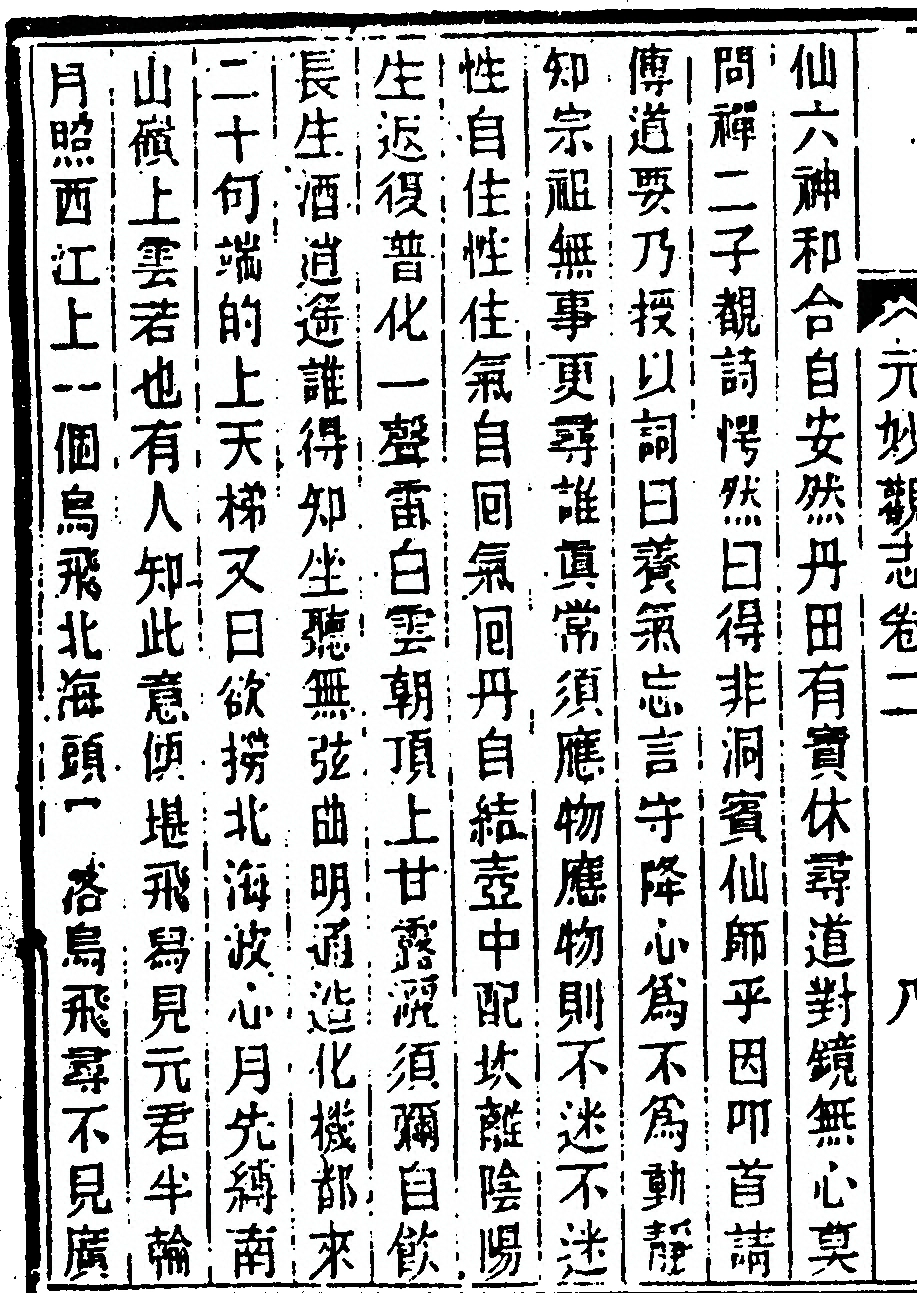 元妙觀志卷二 八
仙六神和合自安然丹田有寶休尋道對鏡無心莫
問禪二子觀詩愕然曰得非洞賓仙師乎因叩首請
傳道要乃授以詞曰養氣忘言守降心為不為動靜
知宗祖無事更尋誰真常須應物應物則不迷不迷
性自住性住氣自回氣回丹自結壺中配坎離陰陽
生返復普化一聲雷白雲朝頂上甘露灑須彌自飲
長生酒逍遙誰得知坐聽無弦曲明通造化機都來
二十句端的上天梯又曰欲撈北海波心月先縛南
山嶺上雲若也有人知此意倩堪飛舄見元君半輪
月照西江上一個烏飛北海頭一落烏飛尋不見廣